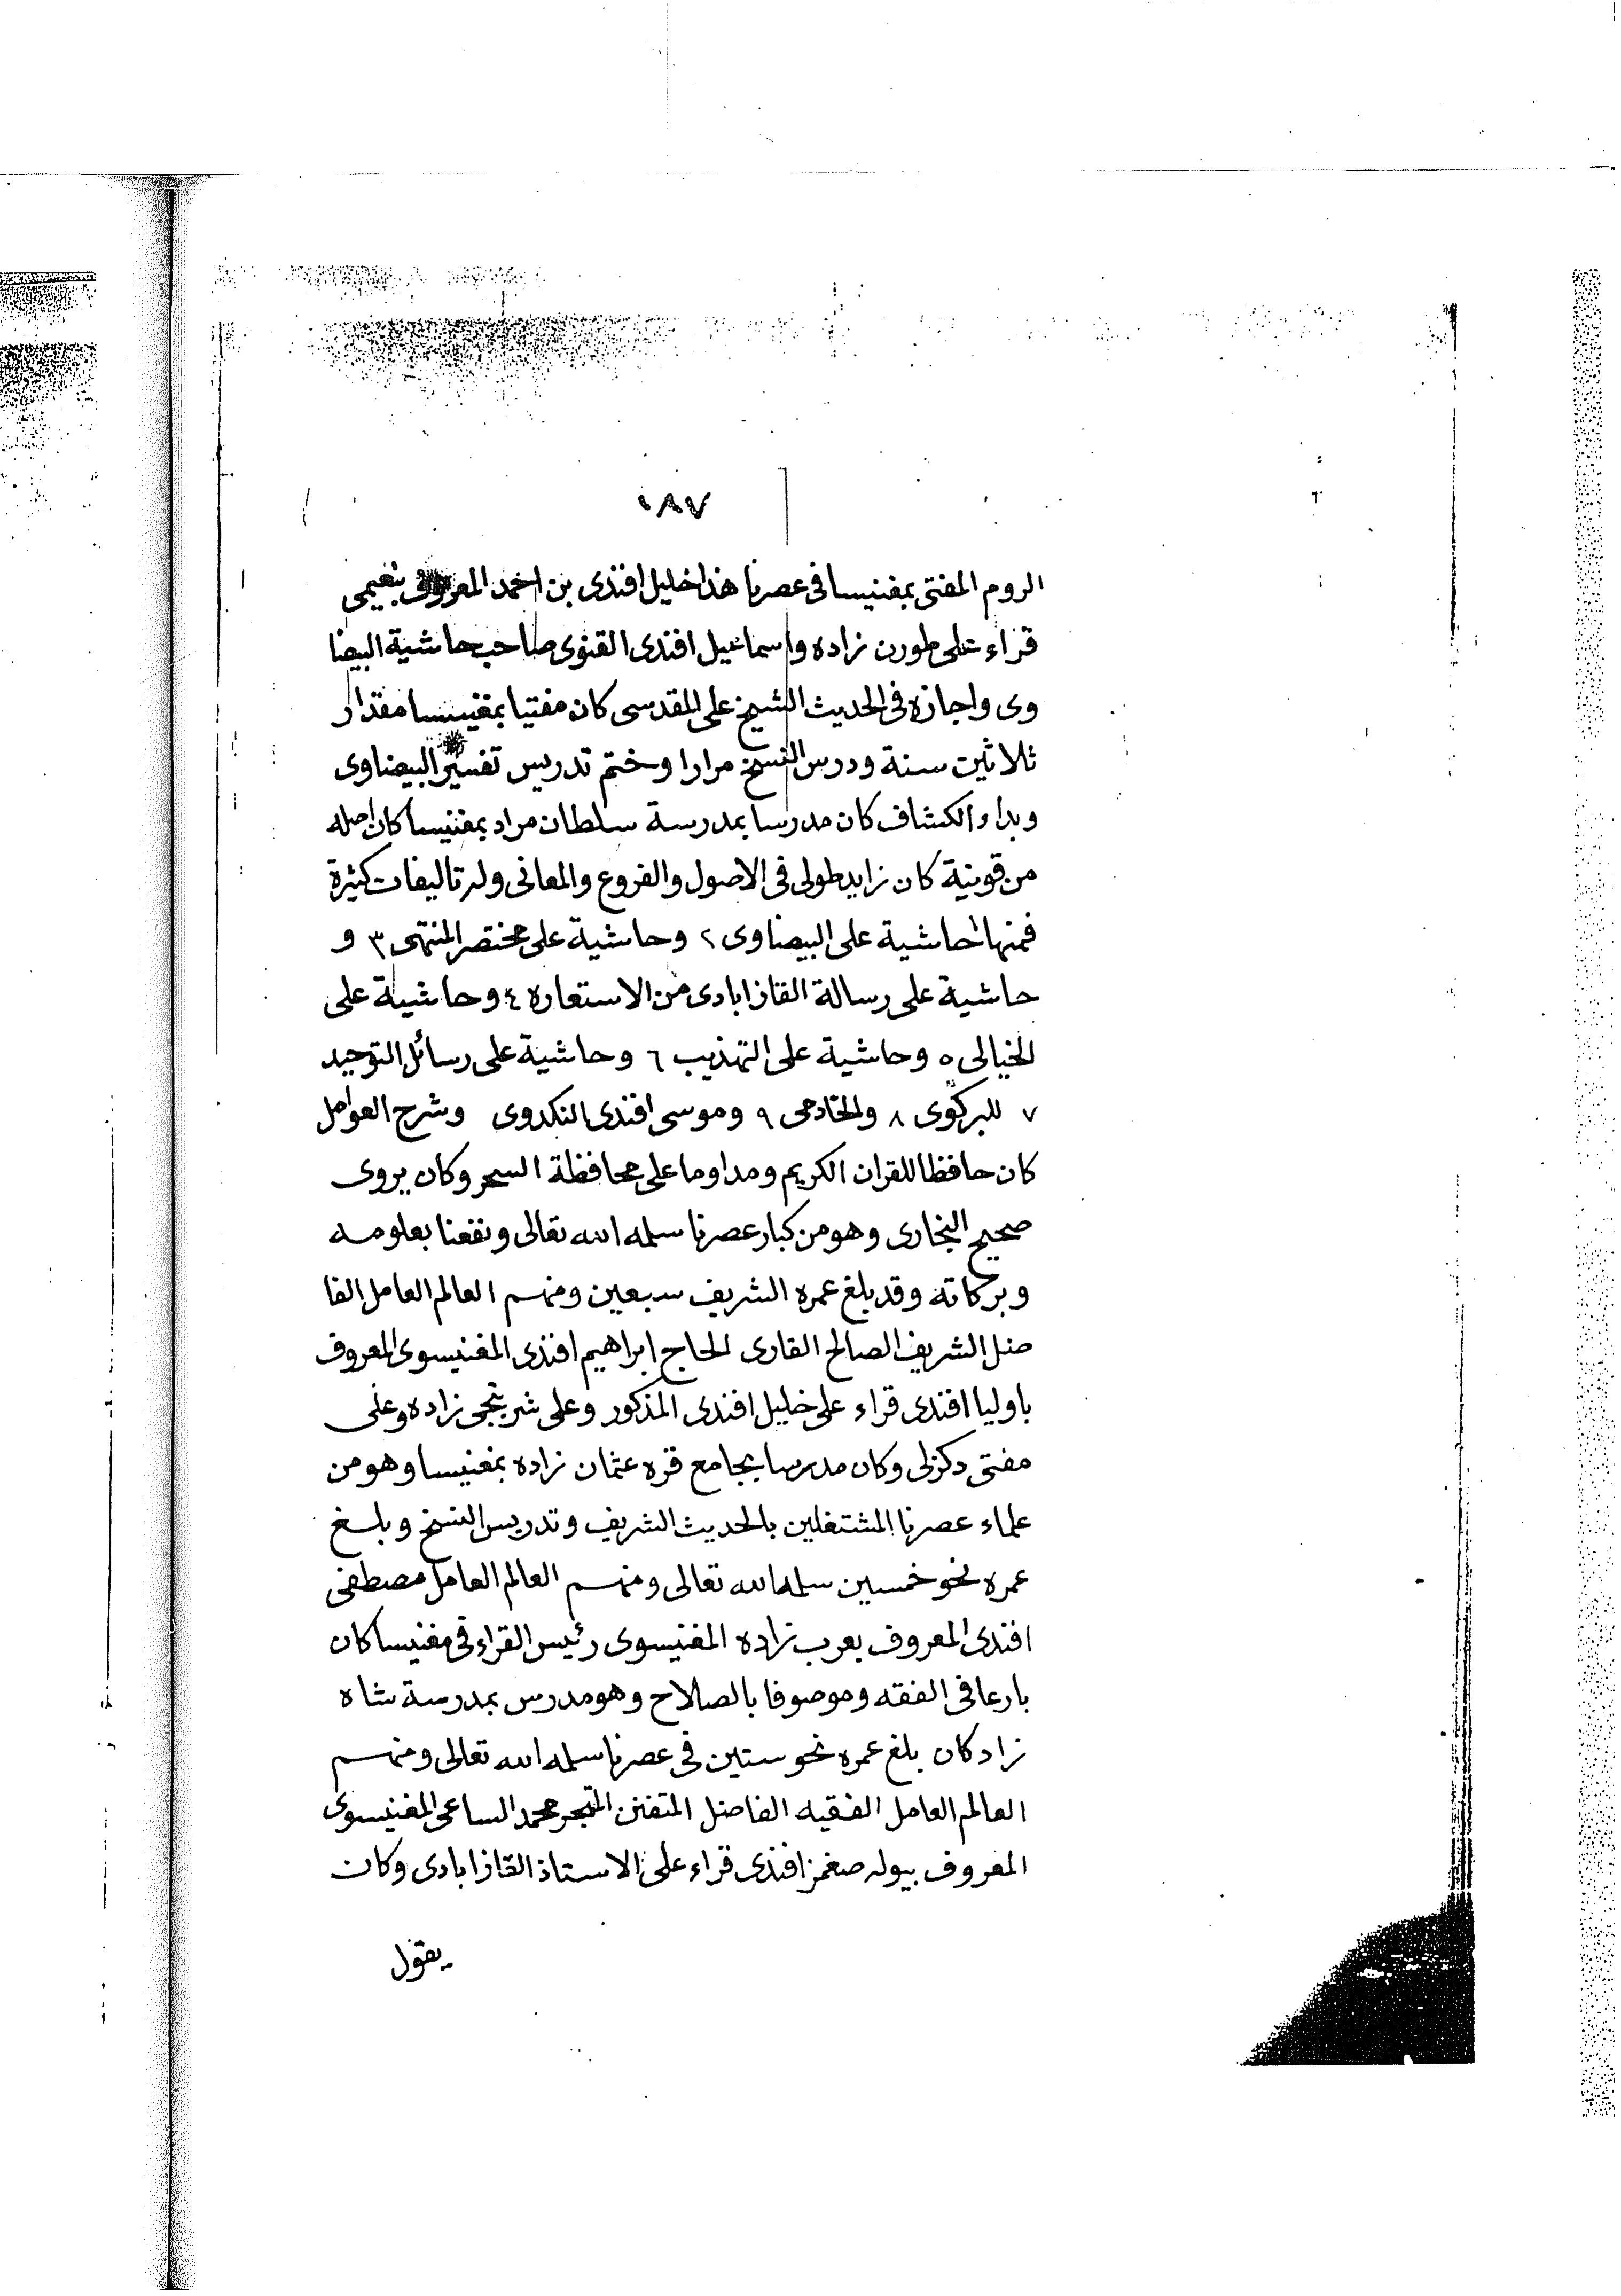 ١٨٧
الروم المفتى بمغنيسا فى عصرنا هذا خليل افندى بن احمد المعروف بنعيمى
قراء على طورن زاده واسماعيل افندى القنوى صاحب حاشية البيضا
وى واجازه فى الحديث الشيخ على المقدسى كان مفتيا بمغنيسا مقدار
ثلاثين سنة ودرس النسخ مرارا وختم تدريس تفسير البيضاوى
وبداء الكشاف كان مدرسا بمدرسة سلطان مراد بمغنيسا كان اصله
من قونية كان زايد طولى فى الاصول والفروع والمعانى وله تاليفات كثيرة
فمنها ١ حاشية على البيضاوى ٢ وحاشية على مختصر المنتهى ٣ و
حاشية على رسالة القازابادى من الاستعاره ٤ وحاشية على
الخيالى ٥ وحاشية على التهذيب ٦ وحاشية على رسائل التوحيد
٧ للبركوى ٨ والخادمى ٩ وموسى افندى النكدوى وشرح العوامل
كان حافظا للقران الكريم ومداوما على محافظة السحر وكان يروى
صحيح البخارى وهو من كبار عصرنا سلمه الله تعالى ونفعنا بعلومه
وبركاته وقد بلغ عمره الشريف سبعين ومنهم العالم العامل الفا
ضل الشريف الصالح القارى الحاج ابراهيم افندى المغنيسوى المعروف
باوليا افندى قراء على خليل افندى المذكور وعلى شربتجى زاده وعلى
مفتى دكزلى وكان مدرسا بجامع قره عثمان زاده بمغنيسا وهو من
علماء عصرنا المشتغلين بالحديث الشريف وتدريس النسخ وبلغ
عمره نحو خمسين سلمه الله تعالى ومنهم العالم العامل مصطفى
افندى المعروف بعرب زاده المغنيسوى رئيس القراء فى مغنيسا كان
بارعا فى الفقه وموصوفا بالصلاح وهو مدرس بمدرسة شاه
زاد كان بلغ عمره نحو ستين فى عصرنا سلمه الله تعالى ومنهم
العالم العامل الفقيه الفاضل المتفنن المتبحر محمد الساعى المغنيسوى
المعروف بيوله صغمز افندى قراء على الاستاذ القازابادى وكان
يقول